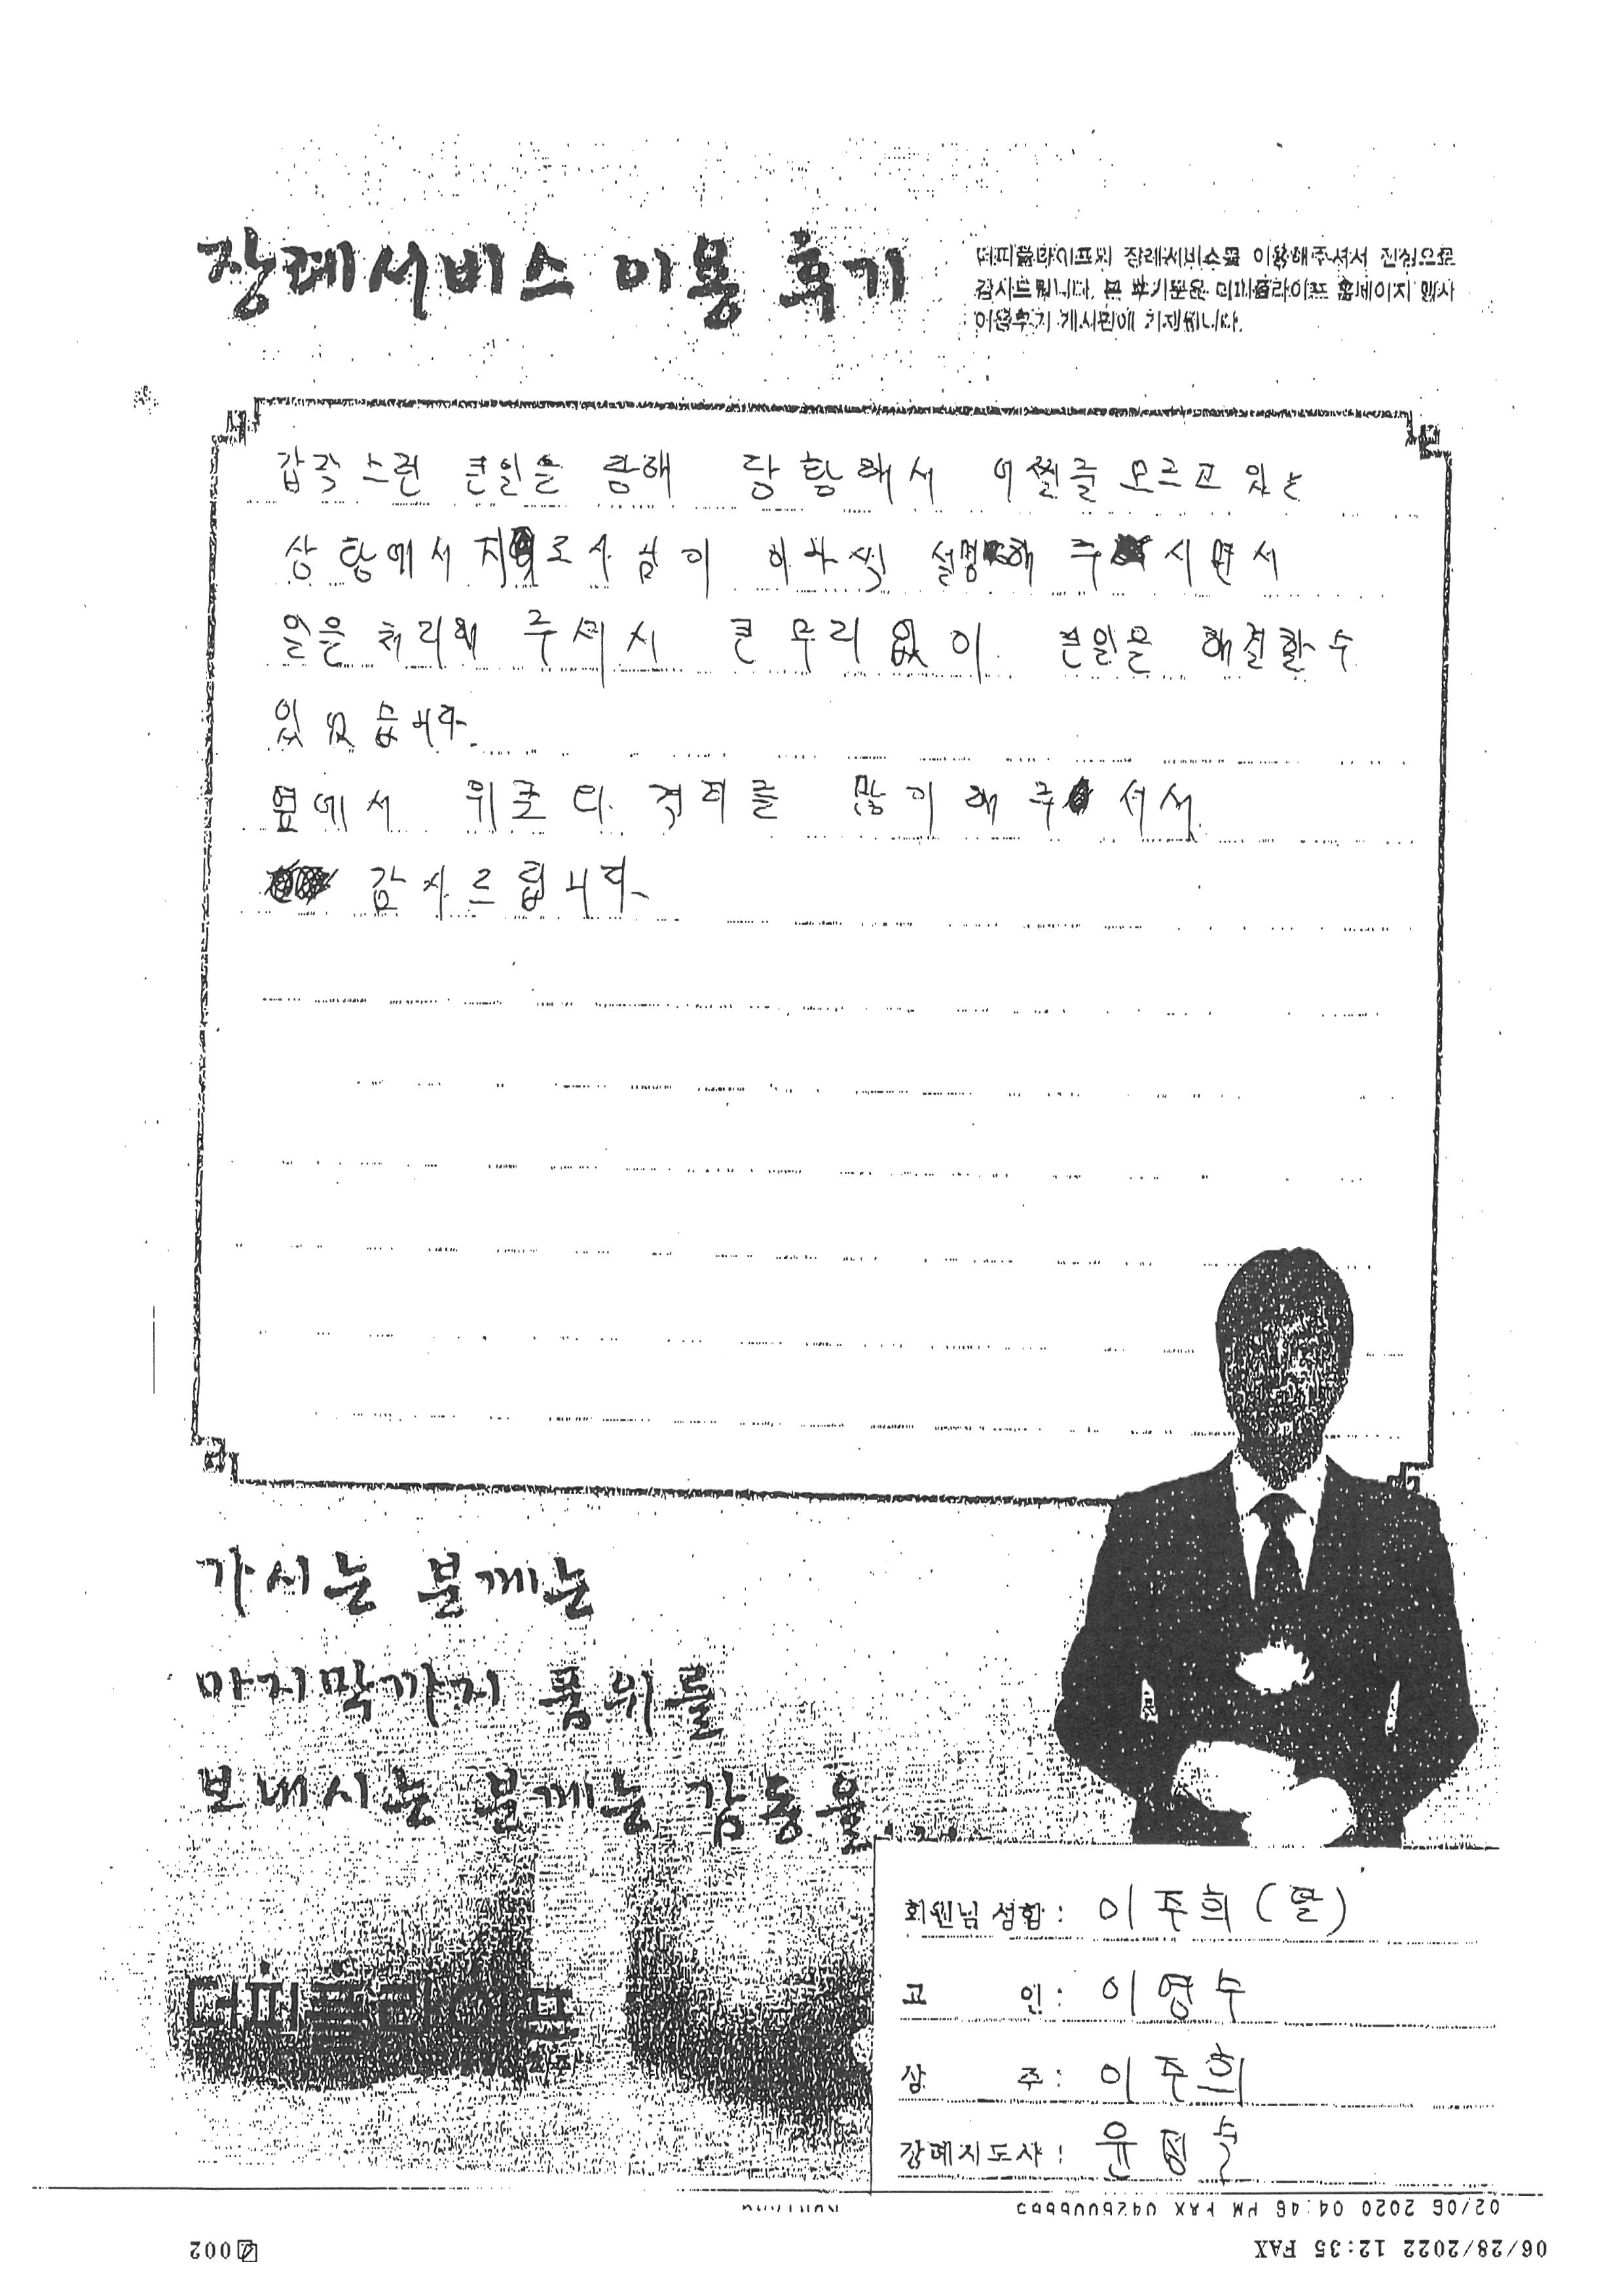 장례서비스 이용 후기
더피플라이프의 장례서비스를 이용해주셔서 진심으로
감사드립니다. 본 후기문은 더피플라이프 홈페이지 행사
이용후기 게시판에 기재됩니다.
갑작스런 큰일을 당해 당황해서 어쩔줄 모르고 있는
상황에서 지도사님이 하나씩 설명해 주시면서
일을 처리해 주셔서 큰 무리 없이 큰일을 해결할수
있었습니다.
옆에서 위로와 격려를 많이 해 주셔서
감사드립니다
가시는 분께는
마지막까지 품위를
보내시는 분께는 감동을....
더피플라이프
회원님 성함: 이주희(딸)
고 인: 이영수
상 주: 이주희
장례지도사: 윤정술
02/06 2020 04:46 PM FAX
06/28/2022 12:35 FAX
002